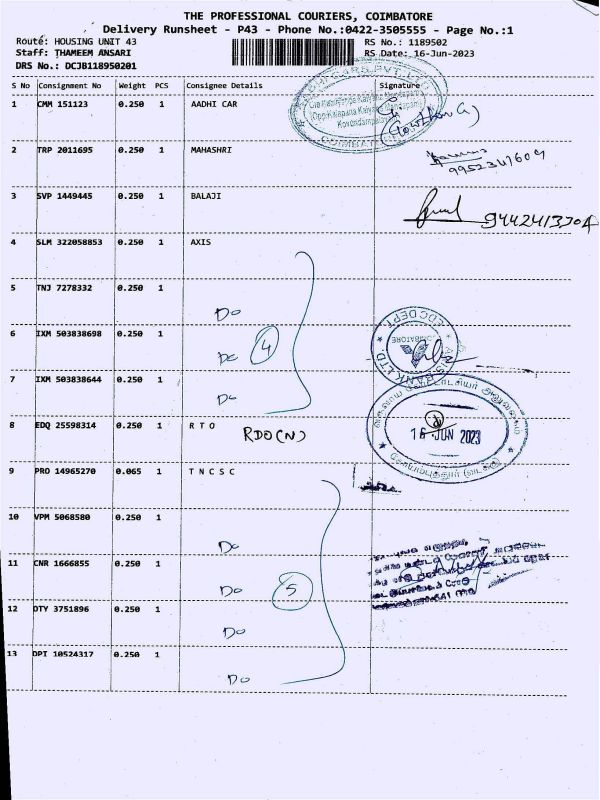 THE PROFESSIONAL COURIERS, COIMBATORE
Delivery Runsheet - P43 - Phone No.:0422-3505555 - Page No.:1
Route: HOUSING UNIT 43
RS No.: 1189502
Staff: THAMEEM ANSARI
RS Date: 16-Jun-2023
DRS No.: DCJB118950201
S No Consignment No Weight PCS Consignee Details Signature
1 CMM 151123 0.250 1 AADHI CAR
2 TRP 2011695 0.250 1 MAHASHRI
3 SVP 1449445 0.250 1 BALAJI
9442413704
4 SLM 322058853 0.250 1 AXIS
5 TNJ 7278332 0.250 1
Do
6 IXM 503838698 0.250 1
Do 4
7 IXM 503838644 0.250 1
Do
8 EDQ 25598314 0.250 1 R T O
RDO(N)
16 JUN 2023
9 PRO 14965270 0.065 1 T N C S C
10 VPM 5068580 0.250 1
Do
11 CNR 1666855 0.250 1
Do 5
12 OTY 3751896 0.250 1
Do
13 DPI 10524317 0.250 1
Do